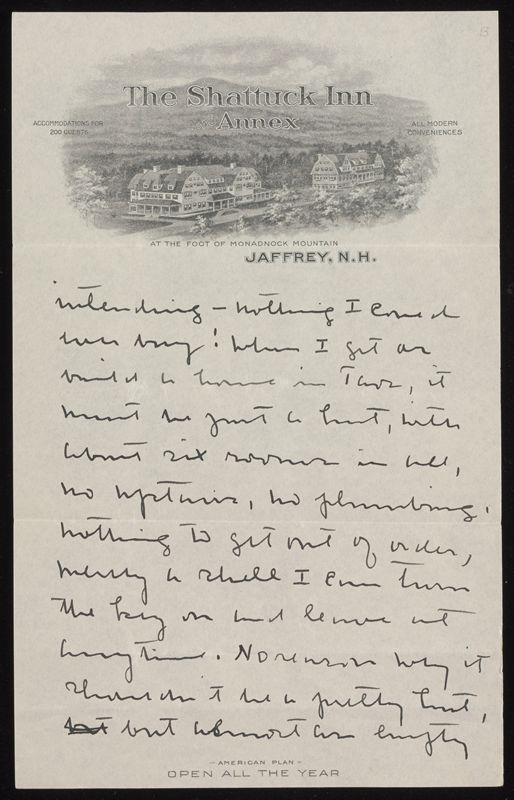 13
The Shattuck Inn
AND Annex
ACCOMMODATIONS FOR
200 GUESTS
ALL MODERN
CONVENIENCES
AT THE FOOT OF MONADNOCK MOUNTAIN
JAFFREY, N.H.
intending – nothing I could
ever buy! When I get or
build a home in Taos, it
must be just a hut, with
about six rooms in all,
no upstairs, no plumbing,
nothing to get out of order,
merely a shell I can turn
the key on and leave at
any time. No reason why it
shouldn't be a pretty hut,
but but almost an empty
– AMERICAN PLAN –
OPEN ALL THE YEAR